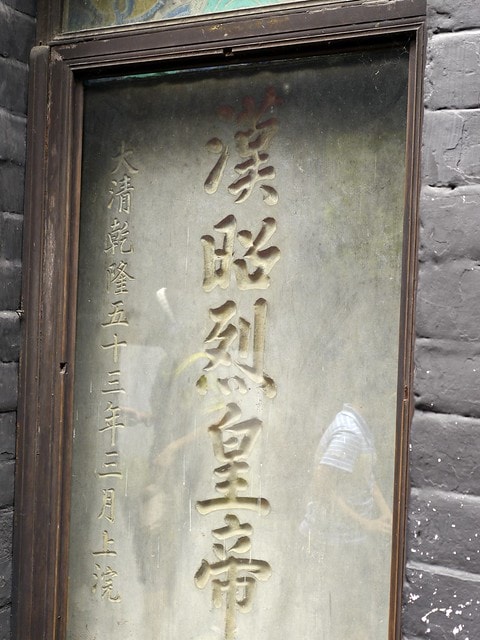 漢昭烈皇帝
大清乾隆五十三年三月上浣